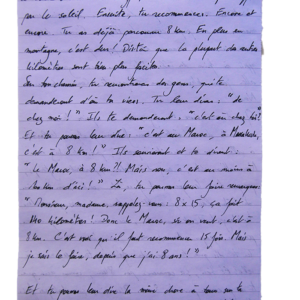 par le soleil. Ensuite, tu recommences. Encore et
encore. Tu as déjà parcouru 8 km. En plus en
montagne, c'est dur ! Dis-toi que la plupart des autres
kilomètres sont bien plus faciles.
Sur ton chemin, tu rencontreras des gens, qui te
demanderont d'où tu viens. Tu leur diras : "de
chez moi !" Ils te demanderont : "c'est où chez toi ?"
Et tu pourras leur dire : "c'est au Maroc, à Marrakech,
c'est à 8 km !" Ils souriront et te diront :
"Le Maroc, à 8 km ?! Mais non, c'est au moins à
km d'ici !" Là, tu pourras leur faire remarquer :
"Monsieur, madame, rappelez-vous : 8 x 15, ça fait
kilomètres ! Donc le Maroc, si on veut, c'est à
8 km. C'est vrai qu'il faut recommencer 15 fois. Mais
je sais le faire, depuis que j'ai 8 ans !"
Et tu pourras leur dire la même chose à